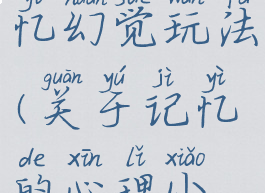 忆幻觉玩法
guān yú jì yì
(关于记忆
de xīn lǐ xiǎo
的心理小